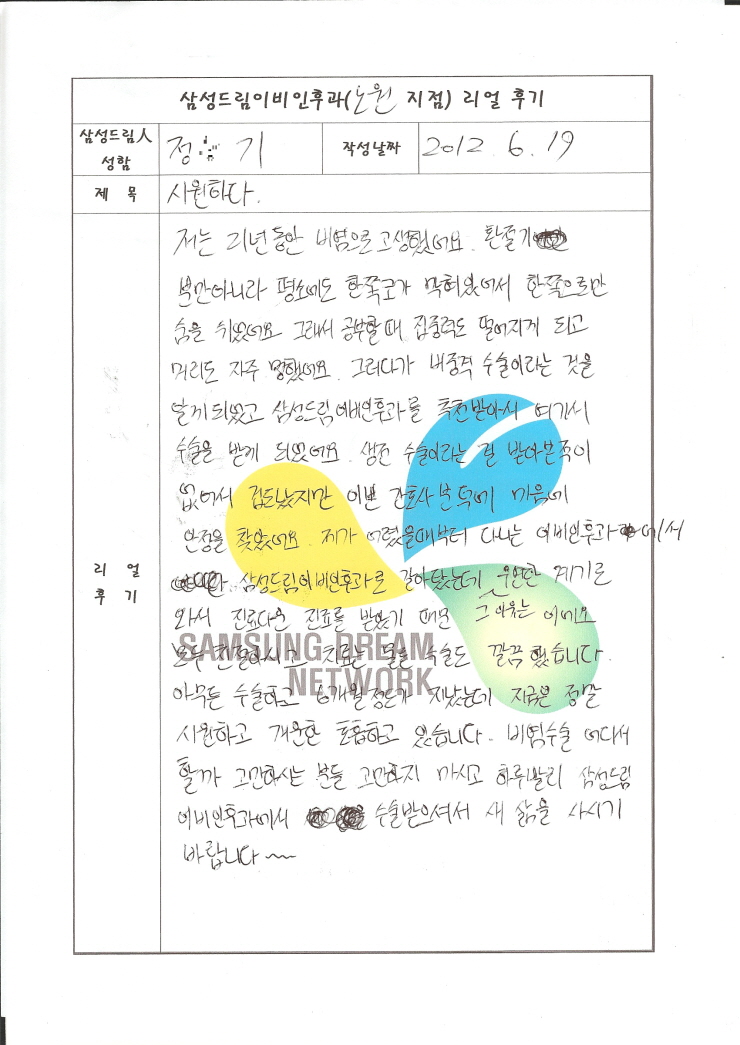 삼성드림이비인후과(노원 지점) 리얼 후기
삼성드림人 성함 정 기 작성날짜 2012. 6. 19
제 목 시원하다.
리 얼 후 기
저는 21년 동안 비염으로 고생했어요. 환절기
뿐만아니라 평소에도 한쪽코가 막혀있어서 한쪽으로만
숨을 쉬었어요. 그래서 공부할 때 집중력도 떨어지게 되고
머리도 자주 멍했어요. 그러다가 내중격 수술이라는 것을
알게되었고 삼성드림이비인후과를 추천받아서 여기서
수술을 받게 되었어요. 생전 수술이라는 걸 받아본적이
없어서 겁도났지만 이쁜 간호사분 덕에 마음에
안정을 찾았어요. 제가 어렸을때부터 다니는 이비인후과에서
삼성드림이비인후과로 갈아탔는데 우연한 계기로
와서 진료다운 진료를 받았기 때문 그 이유는 이에요
모두 친절하시고 치료는 물론 수술도 깔끔했습니다.
SAMSUNG DREAM
NETWORK
아무튼 수술하고 6개월정도가 지났는데 지금은 정말
시원하고 개운한 호흡하고 있습니다. 비염수술 어디서
할까 고민하시는 분들 고민하지 마시고 하루빨리 삼성드림
이비인후과에서 수술받으셔서 새 삶을 사시기
바랍니다~